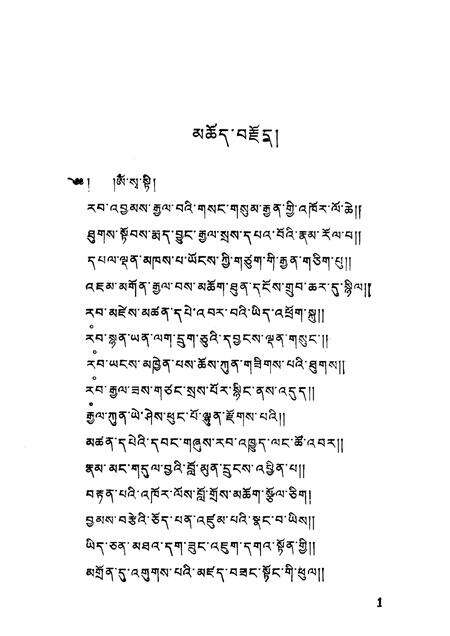 མཆོད་བརྗོད།
༄༅། །ཨོཾ་སྭ་སྟི།
རབ་འབྱམས་རྒྱལ་བའི་གསང་གསུམ་རྒྱན་གྱི་འཁོར་ལོ་ཆེ།།
ཐུགས་སྟོབས་རྨད་བྱུང་རྒྱལ་སྲས་དཔའ་བོའི་རྣམ་རོལ་པ།།
དཔལ་ལྡན་མཁས་པ་ཡོངས་ཀྱི་གཙུག་གི་རྒྱན་གཅིག་པུ།།
འཇམ་མགོན་རྒྱལ་བས་མཆོག་ཐུན་དངོས་གྲུབ་ཆར་དུ་སྙིལ།།
རབ་མཛེས་མཚན་དཔེ་འབར་བའི་ཡིད་འཕྲོག་སྐུ།།
རབ་སྙན་ཡན་ལག་དྲུག་ཅུའི་དབྱངས་ལྡན་གསུང་།།
རབ་ཡངས་མཁྱེན་པས་ཆོས་ཀུན་གཟིགས་པའི་ཐུགས།།
རབ་རྒྱལ་ཟས་གཙང་སྲས་པོར་སྙིང་ནས་འདུད།།
རྒྱལ་ཀུན་ཡེ་ཤེས་ཕུང་པོ་ལྷུན་རྫོགས་པའི།།
མཚན་དཔེའི་དབང་གཞུས་རབ་འཁྱུད་ལང་ཚོ་འབར།།
རྣམ་མང་གདུལ་བྱའི་བློ་མུན་དྲུངས་འབྱིན་པ།།
བརྟན་པའི་འཁོར་ལོས་བློ་གྲོས་མཆོག་སྩོལ་ཅིག།
བྱམས་བརྩེའི་ཅོད་པན་འཛུམ་པའི་སྣང་བ་ཡིས།།
ཡིད་ཅན་མཐའ་དག་ཟུང་འཇུག་དགའ་སྟོན་གྱི།།
མགྲོན་དུ་འགུགས་པའི་མཛད་བཟང་སྟོང་གི་ཕུལ།།
1